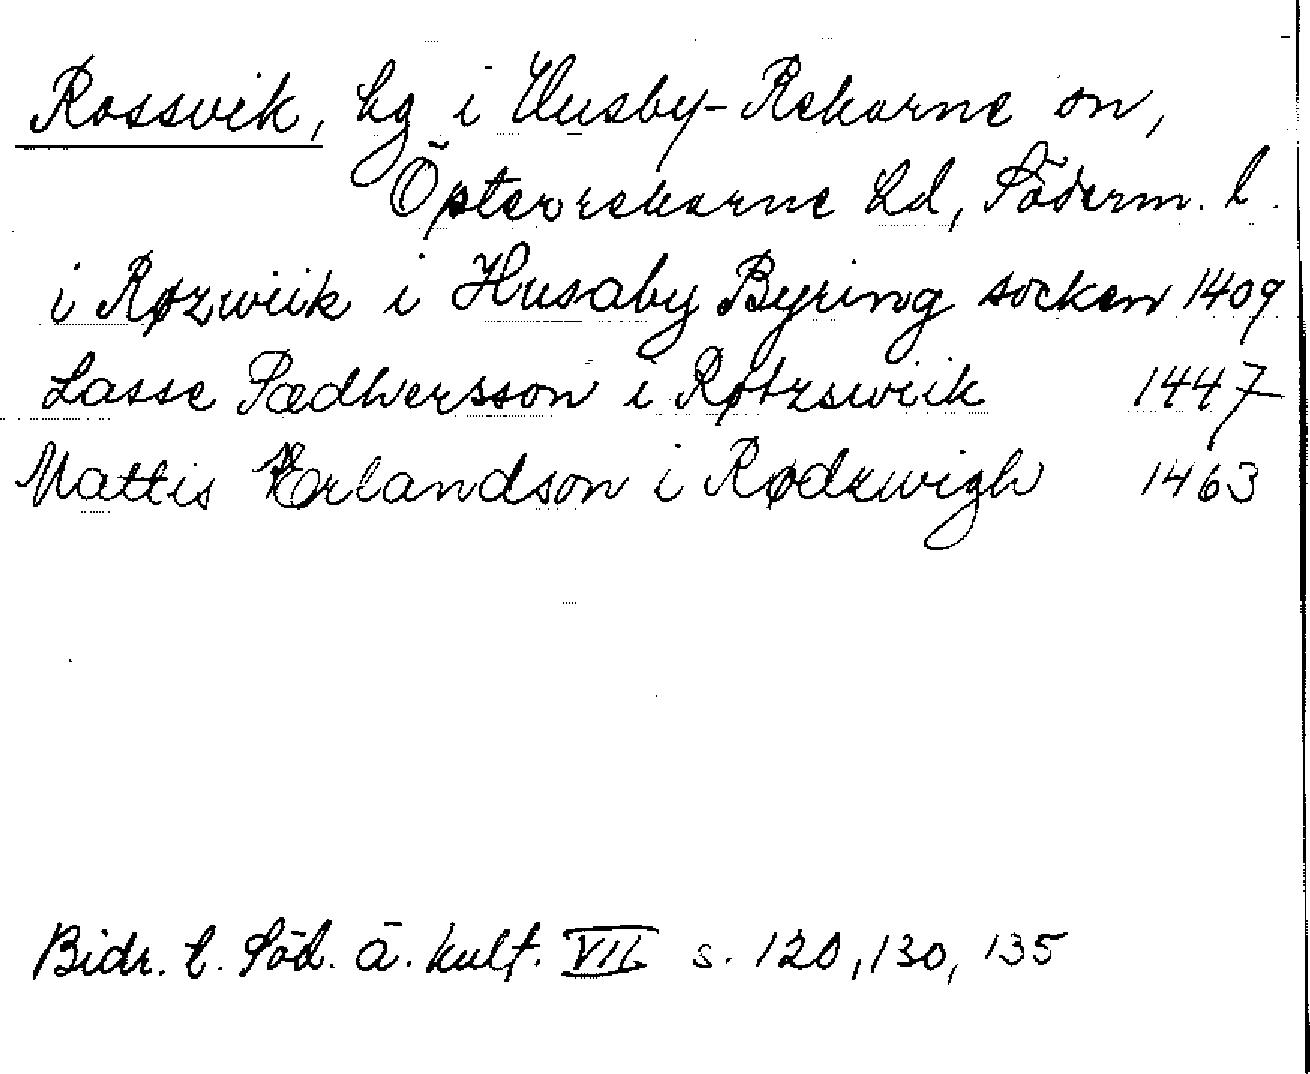 Rossvik, hg i Husby-Rekarne sn,
Österrekarne hd, Söderm. l.
i Røzwiik i Husaby Byring socken 1409
Lasse Pædhersson i Røtzswiik 1447
Mattis Erlandson i Rødzwigh 1463
Bidr. t. Söd. ä. kult. VII s. 120, 130, 135